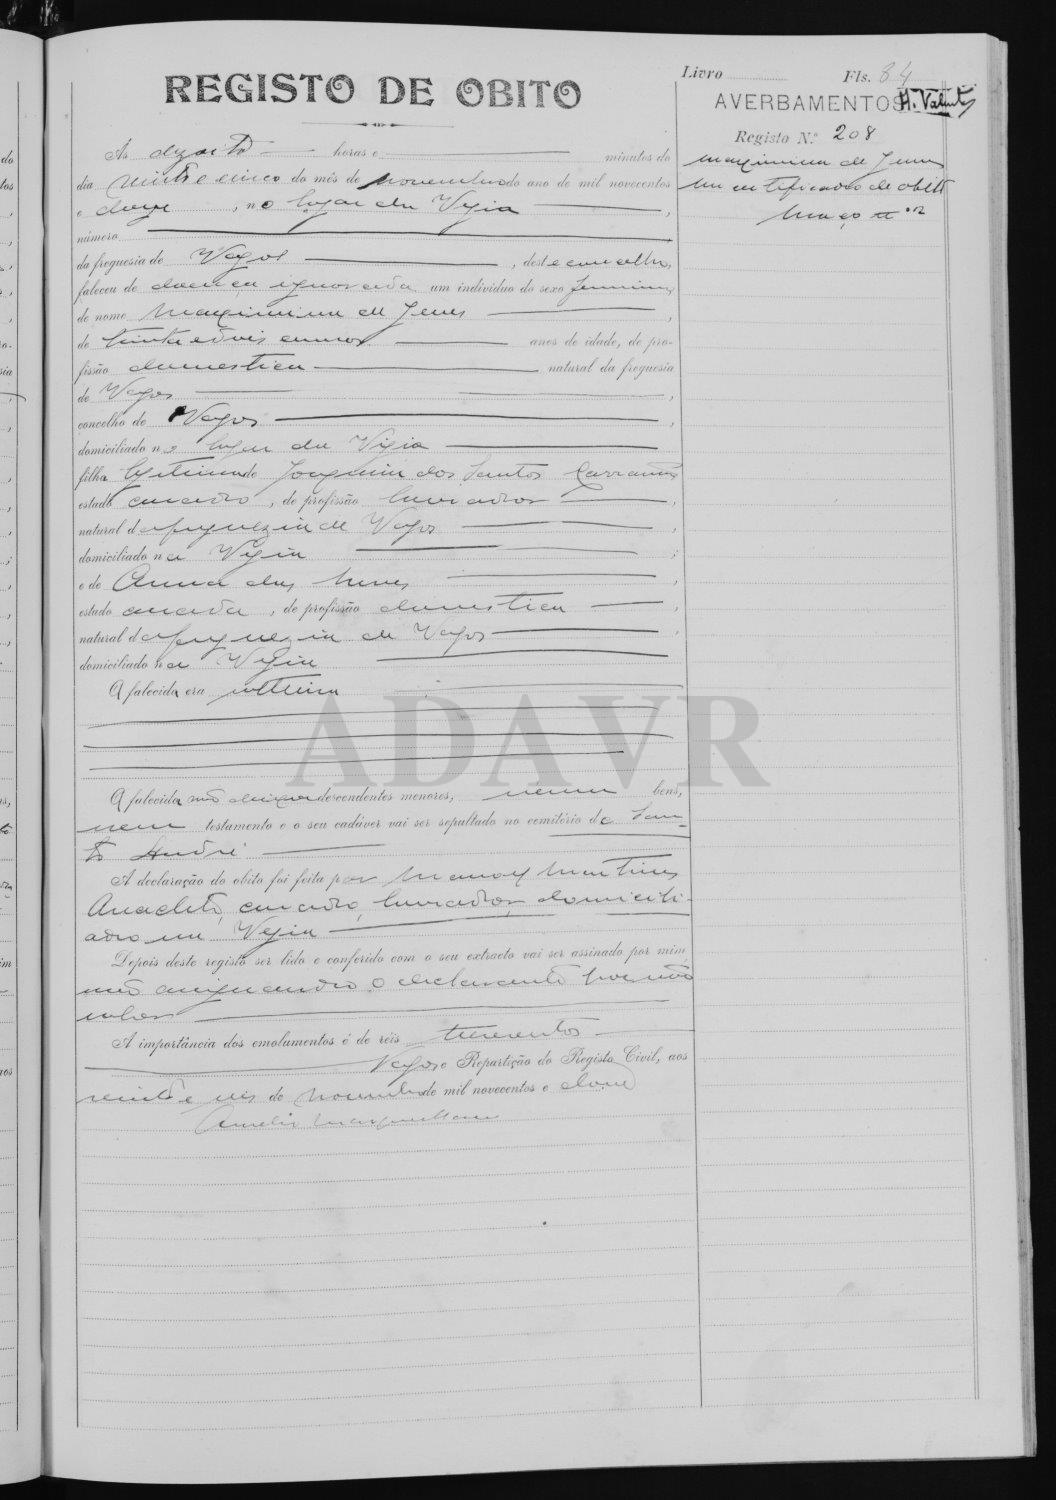 Livro Fls. 84
REGISTO DE OBITO
AVERBAMENTOS H. Valente
Registo N.º 208
Maximina de Jesus
um certificado de obito
Março nº 12
Ás dezoito horas e minutos do
dia vinte e cinco do mês de novembro do ano de mil novecentos
e doze, no lugar da Vigia,
número
da freguesia de Vagos, deste concelho,
faleceu de doença ignorada um individuo do sexo feminino
de nome Maximina de Jesus,
de trinta e dois annos anos de idade, de pro-
fissão domestica natural da freguesia
de Vagos,
concelho de Vagos,
domiciliado no lugar da Vigia
filha legitima de Joaquim dos Santos
estado casado, de profissão lavrador,
natural da freguezia de Vagos,
domiciliado na Vigia;
e de Anna das Neves,
estado casada, de profissão domestica,
natural da freguezia de Vagos,
domiciliado na Vigia
A falecida era solteira
A falecida não deixa descendentes menores, nem bens,
nem testamento e o seu cadáver vai ser sepultado no cemitério de San-
to André
A declaração do obito foi feita por Manoel Martins
Anacleto, casado, lavrador, domicili-
ado na Vigia
Depois deste registo ser lido e conferido com o seu extracto vai ser assinado por mim,
não assignando o declarante por não
saber
A importância dos emolumentos é de réis trezentos
Vagos e Repartição do Registo Civil, aos
vinte e seis de novembro de mil novecentos e doze
ADAVR